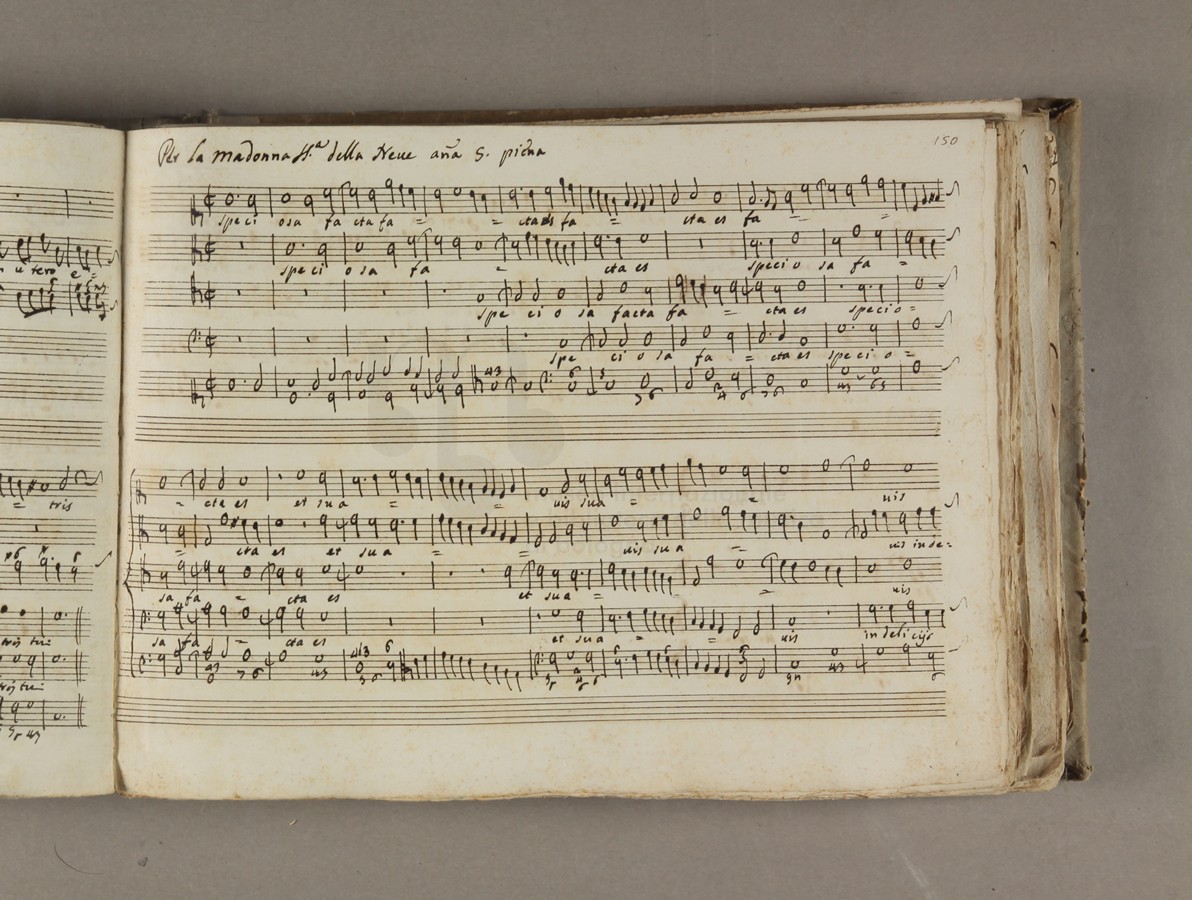 150
Per la madonna SS.ª della Neve aña 5. piena
speci osa fa cta fa = = cta es fa = cta es fa = =
speci o sa fa = cta es speci o sa fa =
spe ci o sa facta fa = cta es specio =
spe ci o sa fa = cta es speci o =
= cta es et sua = = uis sua = = uis
= cta es et sua = = uis sua = uis in de=
sa fa = cta es et sua = = uis
sa fa = cta es et sua = = uis in delicijs
utero e
tris